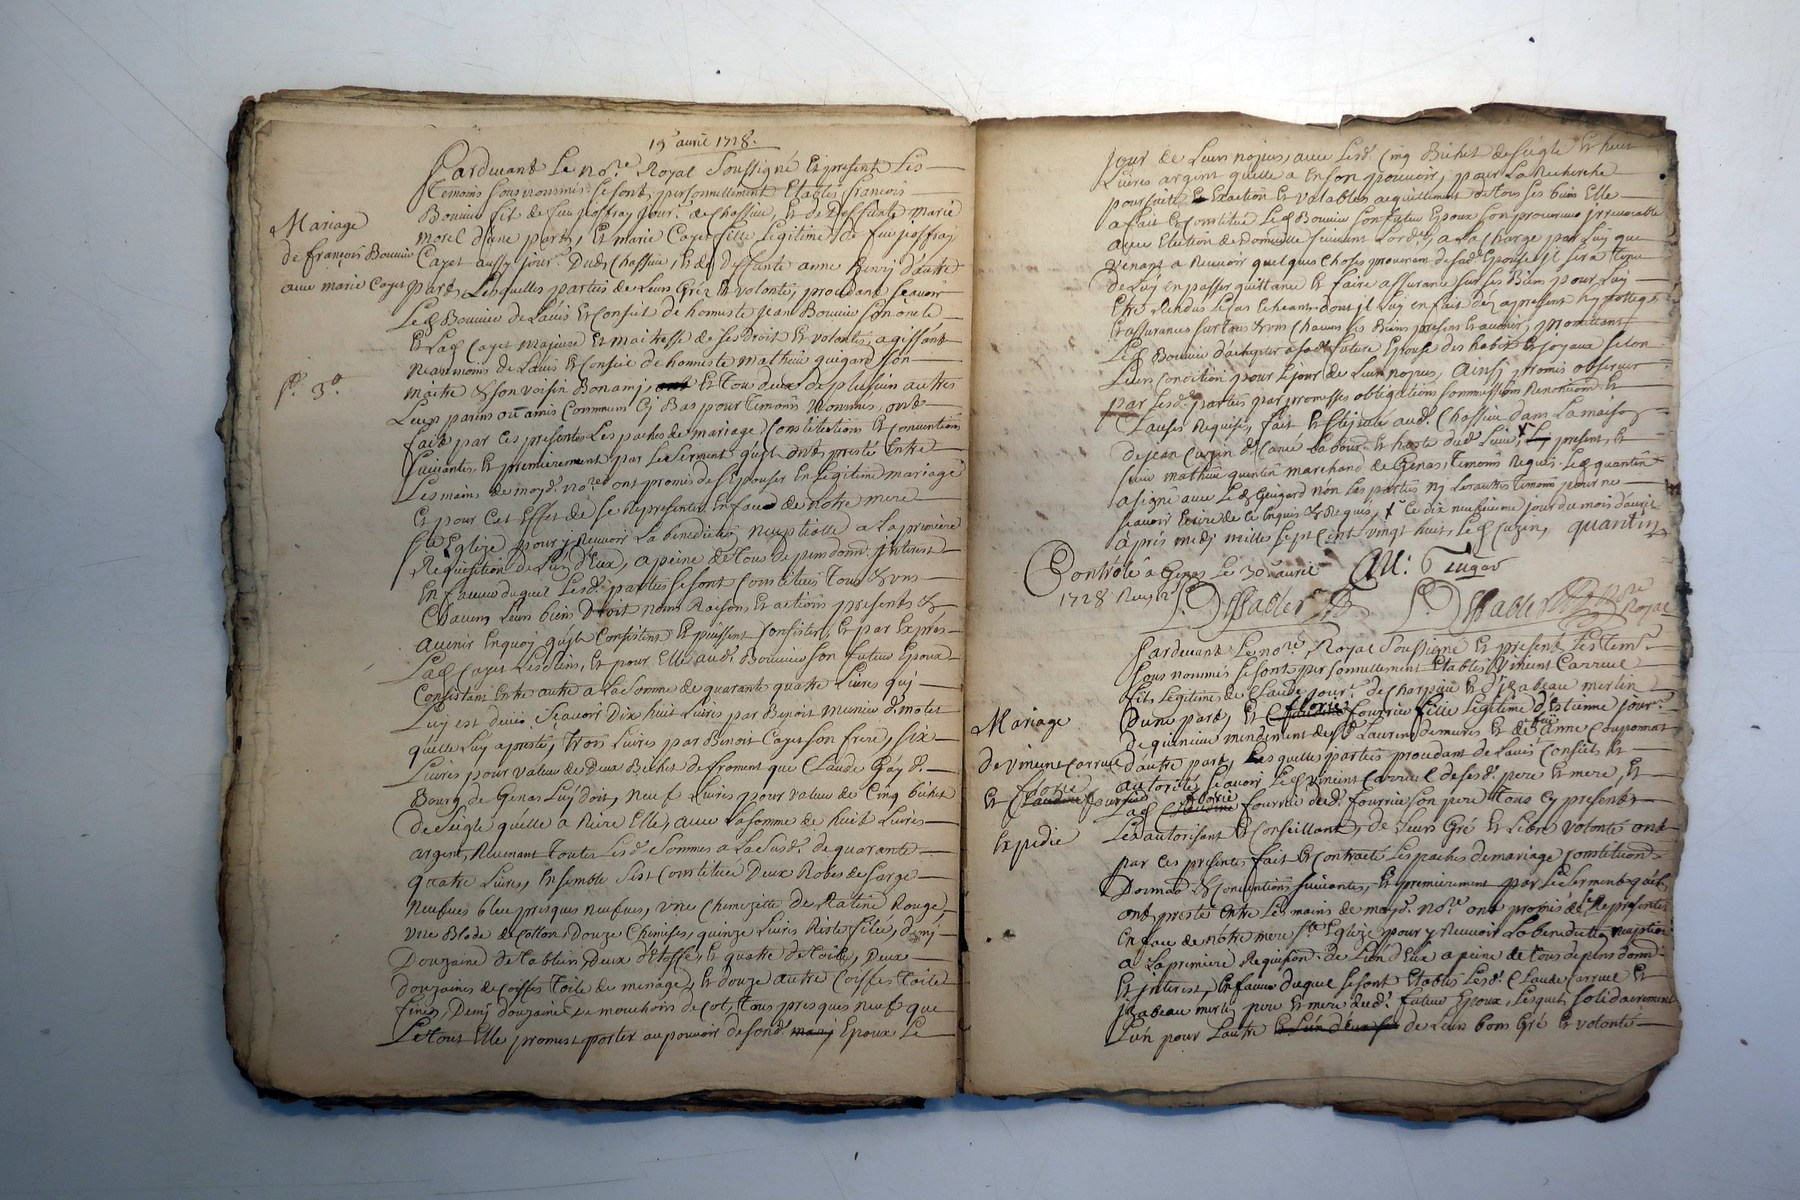 19e avril 1728.
Pardevant Le nore Royal Soussigné Et present Les
Temoins sousnommés se sont personnellement Etablis françois
Bouvier fils de feu joffray jour. de chassieu, Et de Deffunte Marie
Morel d'une part, Et marie Cayet fille Legitime de feu joffray
Cayet aussy jour. Dud. Chassieu, Et de deffunte anne Henry d'autre
part, Lesquelles parties de Leurs Gréz Et volonté, procedant sçavoir
Le d Bouvier de Lavis Et Conseil de honneste jean Bouvier son oncle
Et La d Cayet Majeure Et maitresse de ses Droit Et volontés, agissant
neanmoins de Lavis Et Conseil de honneste Mathieu guigard son
maitre & son voisin Bonamj Et Tous deux de plusieurs autres
Leurs parens ou amis Communs Cy Bas pour Temoins Nommés, ont
fait par Ces presentes Les paches de mariage, Constitutions Et Conventions
suivantes, Et premierement par Le serment quils ont presté Entre
Les mains de moyd. nore ont promis de s'Epouser En Legitime mariage
Et pour Cet Effet de se Representer En face de Notre mere
Ste Eglize pour y Recevoir La benediction Nuptialle a La premiere
Requisition de Lun d'Eux, a peine de tous depens domm. Interest
En faveur duquel Lesd. parties se sont Constitués Tous & uns
Chacuns Leurs biens Droit noms Raisons Et actions presents &
avenir En quoy quils Consistent Et puissent Consister, Et par Expres
La d Cayet Les siens, Et pour Elle aud. Bouvier son futur Epoux
Consistant Entre autre a La somme de quarante quatre Livres qui
Luy est deüe sçavoir Dix huit Livres par Benoit Meunier d.
quelle Luy a presté, trois Livres par Benoit Cayet son frere, six
Livres pour valeur de Deux Bichet de froment que Claude d.
Bourg de Genas Luy doit, neuf Livres pour valeur de Cinq bichet
de seigle quelle a Riere Elle, avec La somme de huit Livres
argent, Revenant Toutes Lesd. sommes a La susd. de quarante
quatre Livres, Ensemble s'est Constituée Deux Robes de sarge
neufves bleu presques neufves, une Chemizette de Ratine Rouge,
une Blode de Cotton, Douze Chemises, quinze Livres Rite filée, demj
Douzaine de tabliers, Deux d'Etoffe, Et quatre de toile, Deux
douzaines de Coiffes Toile de menage, Et douze autre Coiffes Toile
fines, Demj douzaine de mouchoirs de Col, Tous presques neuf que
Le tout Elle promest porter au pouvoir de sond. Epoux Le
Mariage
de françois Bouvier
avec marie Cayet
jour de Leurs nopces, avec Lesd. Cinq Bichet de seigle Et huit
Livres argent quelle a En son pouvoir, pour La Recherche
poursuite Exaction Et valables acquittement de tous ses biens Elle
a fait Et Constitué Le d Bouvier son futur Epoux son procureur Irrevocable
avec Election de Domicille suivant Lord.e, a La Charge par Luy que
venant a Recevoir quelques Choses provenant de sad. Epouse Il sera Tenu
de Luy En passer quittance Et faire assurance sur ses Biens pour Luy
Etre Rendus Le Cas Echeant dont Il Luy en fait dez apresent hypoteque
Et assurances sur tous & uns Chacuns ses Biens presens Et avenir, promettant
Le d Bouvier d'achepter a sad. future Epouse des habits Et joyaux selon
Leur Condition pour Le jour de Leurs nopces, Ainsj promis observer
par Lesd. parties par promesses obligations soummissions Renonciations Et
Clauses Requises, fait Et Recité aud. Chassieu dans La maison
de jean Cuzin d. present, Et
sieur mathieu quentin marchand de Genas, Temoins Requis. Le d quantin
a signé avec Le d Guigard non Les parties ny Les autres Temoins pour ne
sçavoir Ecrire de Ce Enquis & Requis, Ce dix neufvieme jour du mois d'avril
apres midj milles sept Cent vingt huit, Le d Cuzin, quantin
Controlé a Genas Le 30 avril
1728
nore
Royal
Pardevant Le nore Royal Soussigné Et present Les Tem.
sous nommés se sont personnellement Etablis vincent Carruel
fils Legitime de Claude jour. de Charpieu Et d'Izabeau merlin
Dune part, Et florie fourrier fille Legitime d'Etienne jour.
de mandement de St Laurent demures Et de feu anne
d'autre part, Lesquelles parties procedant de Lavis Conseil Et
autorité sçavoir Le d vincent Carruel de sesd. pere Et mere, Et
La d florie fourrier dud. fourrier son pere Tous Cy presents
Les autorisant Et Conseillants de Leurs Gré Et Libre volonté ont
par Ces presentes fait Et Contracté Les paches de mariage Constitutions
Donnaõ & Conventions suivantes, Et premierement par Le serment quils
ont presté Entre Les mains de moyd. nore ont promis de se Representer
En face de notre mere Ste Eglize pour y Recevoir La benediction nuptialle
a La premiere Requisition de Lun d'Eux a peine de tous depens domm.
Et Interest, En faveur duquel se sont Etablis Lesd. Claude Carruel Et
Izabeau merlin pere Et mere dud. futur Epoux, Lesquels solidairement
Lun pour Lautre de Leurs bons Gré Et volonté
Mariage
de vincent Carruel
Et florie fourrier
Expedié